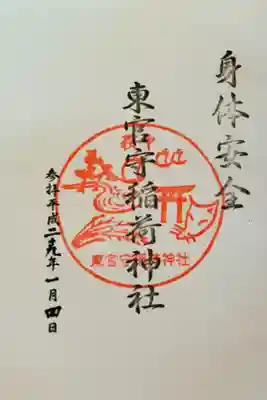 身体安全
東宮守稲荷神社
参拝平成二十九年一月四日
東宮守稲荷神社